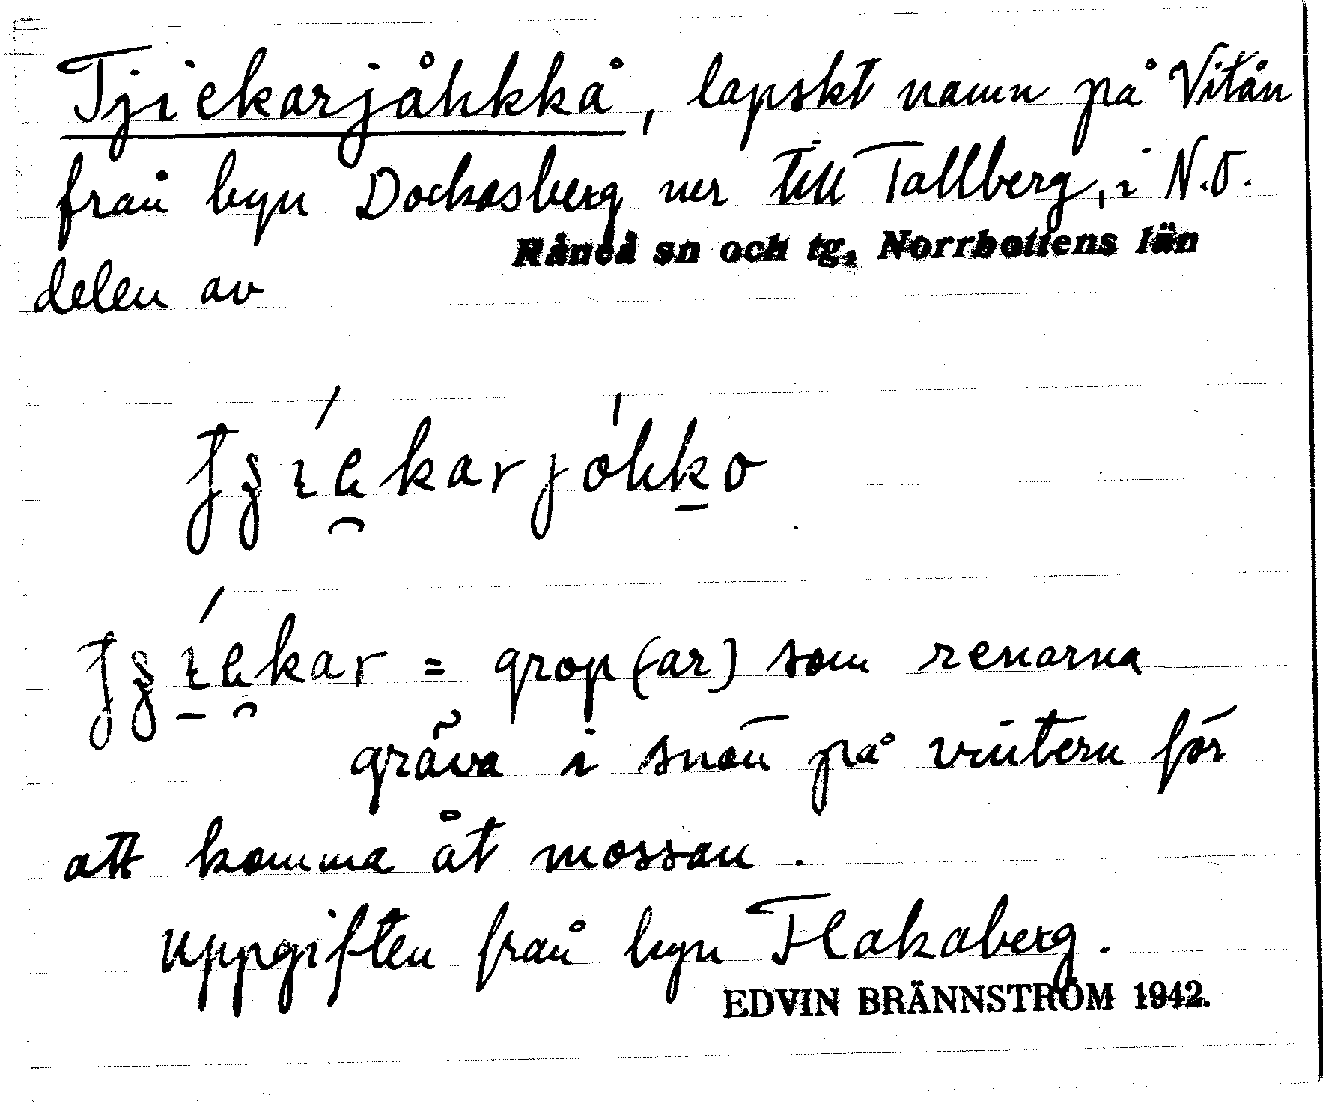 Tjiekarjåhkkå, lapskt namn på Vitån
från byn Dockasberg ner till Tallberg, i N.O.
Råneå sn och tg, Norrbottens län
delen av
tʒíe̯karjóhko
tʒíe̯kar = grop(ar) som renarna
gräva i snön på vintern för
att komma åt mossan.
Uppgiften från byn Flakaberg.
EDVIN BRÄNNSTRÖM 1942.